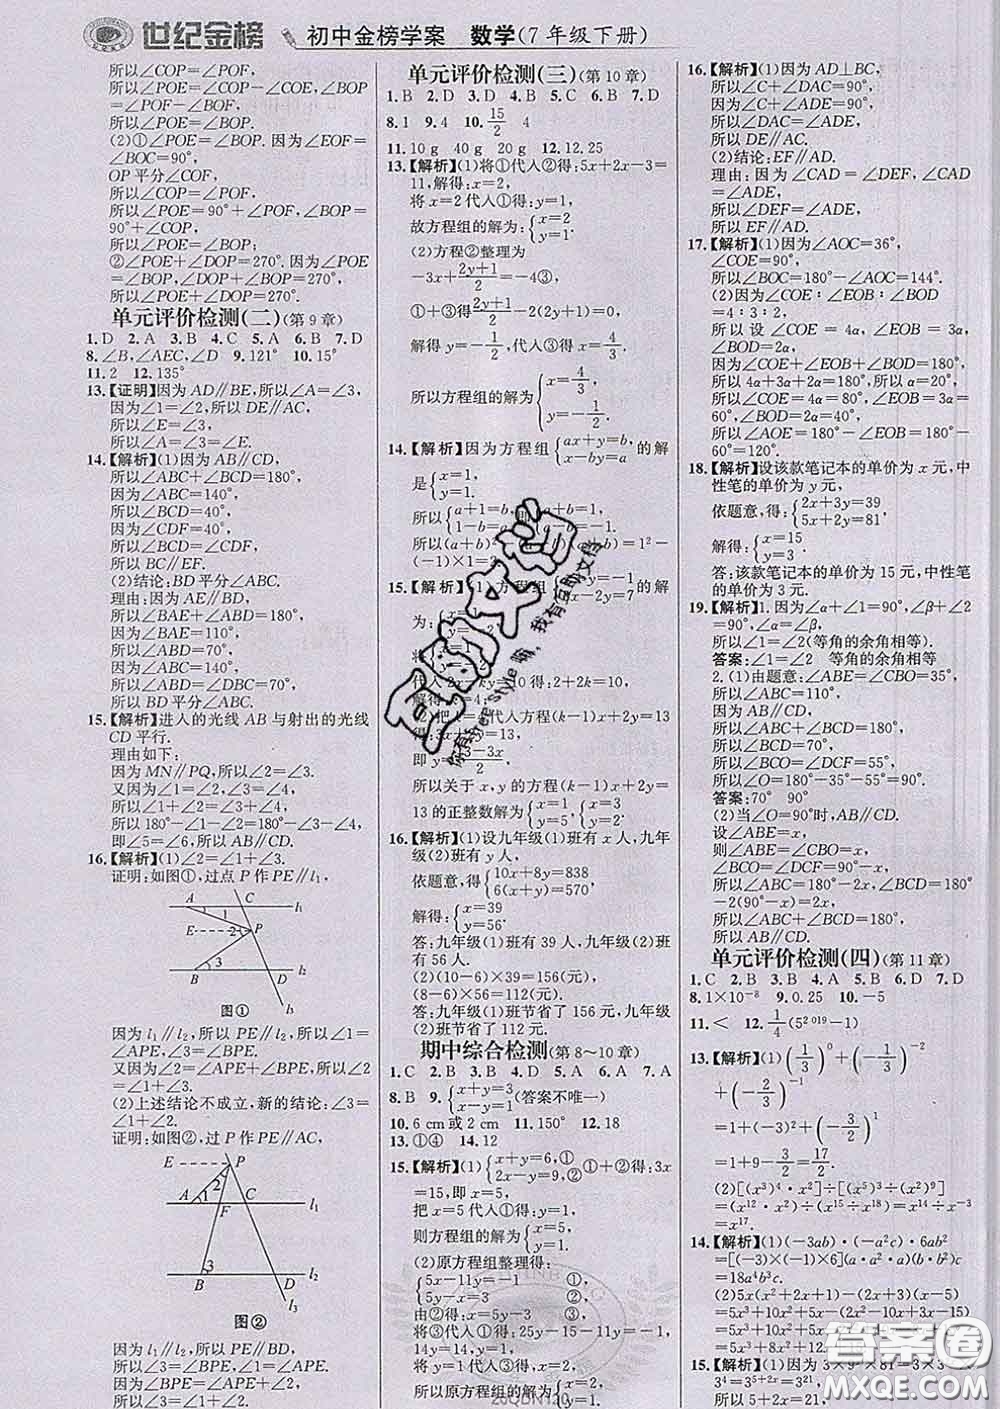 世纪金榜 初中金榜学案 数学(7年级下册)
所以∠COP=∠POF,
所以∠POE=∠COP-∠COE,∠POE
=∠POF-∠BOF.
所以∠POE=∠BOP.
(2)①∠POE=∠BOP. 因为∠EOF=
∠BOC=90°,
OP平分∠COF,
所以∠COP=∠POF,
所以∠POE=90°+∠POF,∠BOP=
90°+∠COP,
所以∠POE=∠BOP;
②∠POE+∠DOP=270°. 因为∠POE
=∠BOP,∠DOP+∠BOP=270°,
所以∠POE+∠DOP=270°.
单元评价检测(二)(第9章)
1.D 2.A 3.B 4.C 5.A 6.B 7.D
8.∠B,∠AEC,∠D 9.121° 10.15°
11.2 12.135°
13.【证明】因为AD∥BE,所以∠A=∠3,
因为∠1=∠2,所以DE∥AC,
所以∠E=∠3,
所以∠A=∠3=∠E.
14.【解析】(1)因为AB∥CD,
所以∠ABC+∠BCD=180°,
因为∠ABC=140°,
所以∠BCD=40°,
因为∠CDF=40°,
所以∠BCD=∠CDF,
所以BC∥EF.
(2)结论:BD平分∠ABC.
理由:因为AE∥BD,
所以∠BAE+∠ABD=180°,
因为∠BAE=110°,
所以∠ABD=70°,
因为∠ABC=140°,
所以∠ABD=∠DBC=70°,
所以BD平分∠ABC.
15.【解析】进入的光线AB与射出的光线
CD平行.
理由如下:
因为MN∥PQ,所以∠2=∠3.
又因为∠1=∠2,∠3=∠4,
所以∠1+∠2=∠3+∠4,
所以180°-∠1-∠2=180°-∠3-∠4,
即∠5=∠6,所以AB∥CD.
16.【解析】(1)∠2=∠1+∠3.
证明:如图①,过点P作PE∥l₁,
A C l₁
1
E 2 P
3
B D l₂
l₃
图①
因为l₁∥l₂,所以PE∥l₂,所以∠1=
∠APE,∠3=∠BPE.
又因为∠2=∠APE+∠BPE,
所以∠2=∠1+∠3.
(2)上述结论不成立,新的结论:∠3=
∠1+∠2.
证明:如图②,过P作PE∥AC,
E P
2
A 1 F C l₁
3
B D l₂
l₃
图②
因为l₁∥l₂,所以PE∥BD,
所以∠1=∠APE,∠3=∠BPE.
因为∠BPE=∠APE+∠2,
所以∠3=∠1+∠2.
单元评价检测(三)(第10章)
1.B 2.D 3.D 4.B 5.C 6.B 7.D
8.1 9.4 10.15/2 4
11.10 g 40 g 20 g 12.12.25
13.【解析】(1)将①代入②得:5x+2x-3=
11,解得:x=2,
将x=2代入①得:y=1,
故方程组的解为:{x=2 y=1.
(2)方程②整理为
-3x+(2y+1)/2=-4③,
①+③得(2y+1)/2+2(2y+1)=0,
解得y=-1/2,代入①得x=4/3,
所以方程组的解为{x=4/3, y=-1/2.
14.【解析】因为方程组{ax+y=b, x-by=a的解
是{x=1, y=1.
所以{a+1=b, 1-b=a,即
所以(a+b)² =1²-
(-1)×1=2.
15.【解析】(1)方程组 =-1 -2y=7的解
为:
代入 2x-ky=10得:2+2k=10,
解得:k=4;
(2)把k=4代入方程(k-1)x+2y=13
得:3x+2y=13,
即y=(13-3x)/2
所以关于x,y的方程(k-1)x+2y=
13的正整数解为{x=1 y=5,{x=3 y=2.
16.【解析】(1)设九年级(1)班有x人,九年
级(2)班有y人,
依题意,得:{10x+8y=838 6(x+y)=570,
解得:{x=39 y=56.
答:九年级(1)班有39人,九年级(2)班
有56人.
(2)(10-6)×39=156(元),
(8-6)×56=112(元).
答:九年级(1)班节省了156元,九年级
(2)班节省了112元.
期中综合检测(第8~10章)
1.C 2.B 3.B 4.C 5.A 6.A 7.A
8.B 9.{x+y=3, x-y=1(答案不唯一)
10.6 cm或2 cm 11.150° 12.18
13.①④ 14.12
15.【解析】(1){x+y=6,① 2x-y=9,②①+②得:3x
=15,即x=5,
把x=5代入①得:y=1,
则方程组的解为{x=5, y=1.
(2)原方程组整理得:
{5x-11y=-1 ①, -x+5y=3 ②,
由②得:x=5y-3 ③
将③代入①得:25y-15-11y=-1,
14y=14,y=1,
将y=1代入③得:x=2,
所以原方程组的解为{x=2, y=1.
16.【解析】(1)因为AD⊥BC,
所以∠C+∠DAC=90°,
因为∠C+∠ADE=90°,
所以∠DAC=∠ADE,
所以DE∥AC.
(2)结论:EF∥AD.
理由:因为∠CAD=∠DEF,∠CAD
=∠ADE,
所以∠DEF=∠ADE,
所以EF∥AD.
17.【解析】(1)因为∠AOC=36°,
∠COE=90°,
所以∠BOC=180°-∠AOC=144°.
(2)因为∠COE∶∠EOB∶∠BOD
=4∶3∶2,
所以设∠COE=4α,∠EOB=3α,
∠BOD=2α,
因为∠COE+∠EOB+∠BOD=180°,
所以4α+3α+2α=180°,所以α=20°,
所以∠COE=4α=80°,∠EOB=3α=
60°,∠BOD=2α=40°,
所以∠AOE=180°-∠EOB=180°-60°
=120°.
18.【解析】设该款笔记本的单价为x元,中
性笔的单价为y元,
依题意,得:{2x+3y=39 5x+2y=81,
解得:{x=15 y=3.
答:该款笔记本的单价为15元,中性笔
的单价为3元.
19.【解析】1.因为∠α+∠1=90°,∠β+∠2
=90°,∠α=∠β,
所以∠1=∠2(等角的余角相等).
答案:∠1=∠2 等角的余角相等
2.(1)由题意:∠ABE=∠CBO=35°,
所以∠ABC=110°,
因为AB∥CD,
所以∠ABC+∠BCD=180°,
所以∠BCD=70°,
所以∠BCO=∠DCF=55°,
所以∠O=180°-35°-55°=90°.
答案:70° 90°
(2)当∠O=90°时,AB∥CD.
设∠ABE=x,
则∠ABE=∠CBO=x,
∠BCO=∠DCF=90°-x,
所以∠ABC=180°-2x,∠BCD=180°
-2(90°-x)=2x,
所以∠ABC+∠BCD=180°,
所以AB∥CD.
单元评价检测(四)(第11章)
1.C 2.B 3.B 4.A 5.B 6.D 7.D
8.1×10⁻⁸ 9.0.25 10.-5
11.< 12.1/4(5²⁰¹⁹-1)
13.【解析】(1)(1/3)⁰+(-1/3)⁻²
+(-2/3)⁻¹
=1+(-3)²+(-3/2)
=1+9-3/2=17/2.
(2)[(x³)⁴·x²]÷[(x⁵)³÷(x²)⁹]
=(x¹²·x²)÷(x¹⁵÷x¹⁸)=x¹⁴÷x⁻³=
x¹⁷.
14.【解析】(1)(-3ab)·(-a²c)·6ab²
=[(-3)×(-1)×6](a·a²·a)(b·b²)c
=18a⁴b³c.
(2)5x(x²+2x+1)-(2x+3)(x-5)
=5x³+10x²+5x-(2x²-7x-15)
=5x³+10x²+5x-2x²+7x+15
=5x³+8x²+12x+15.
15.【解析】(1)因为3×9ᵐ×81=3×3²ᵐ×
3⁴=3⁵⁺²ᵐ=3²¹,
所以5+2m=21,
答案圈
MXQE.COM